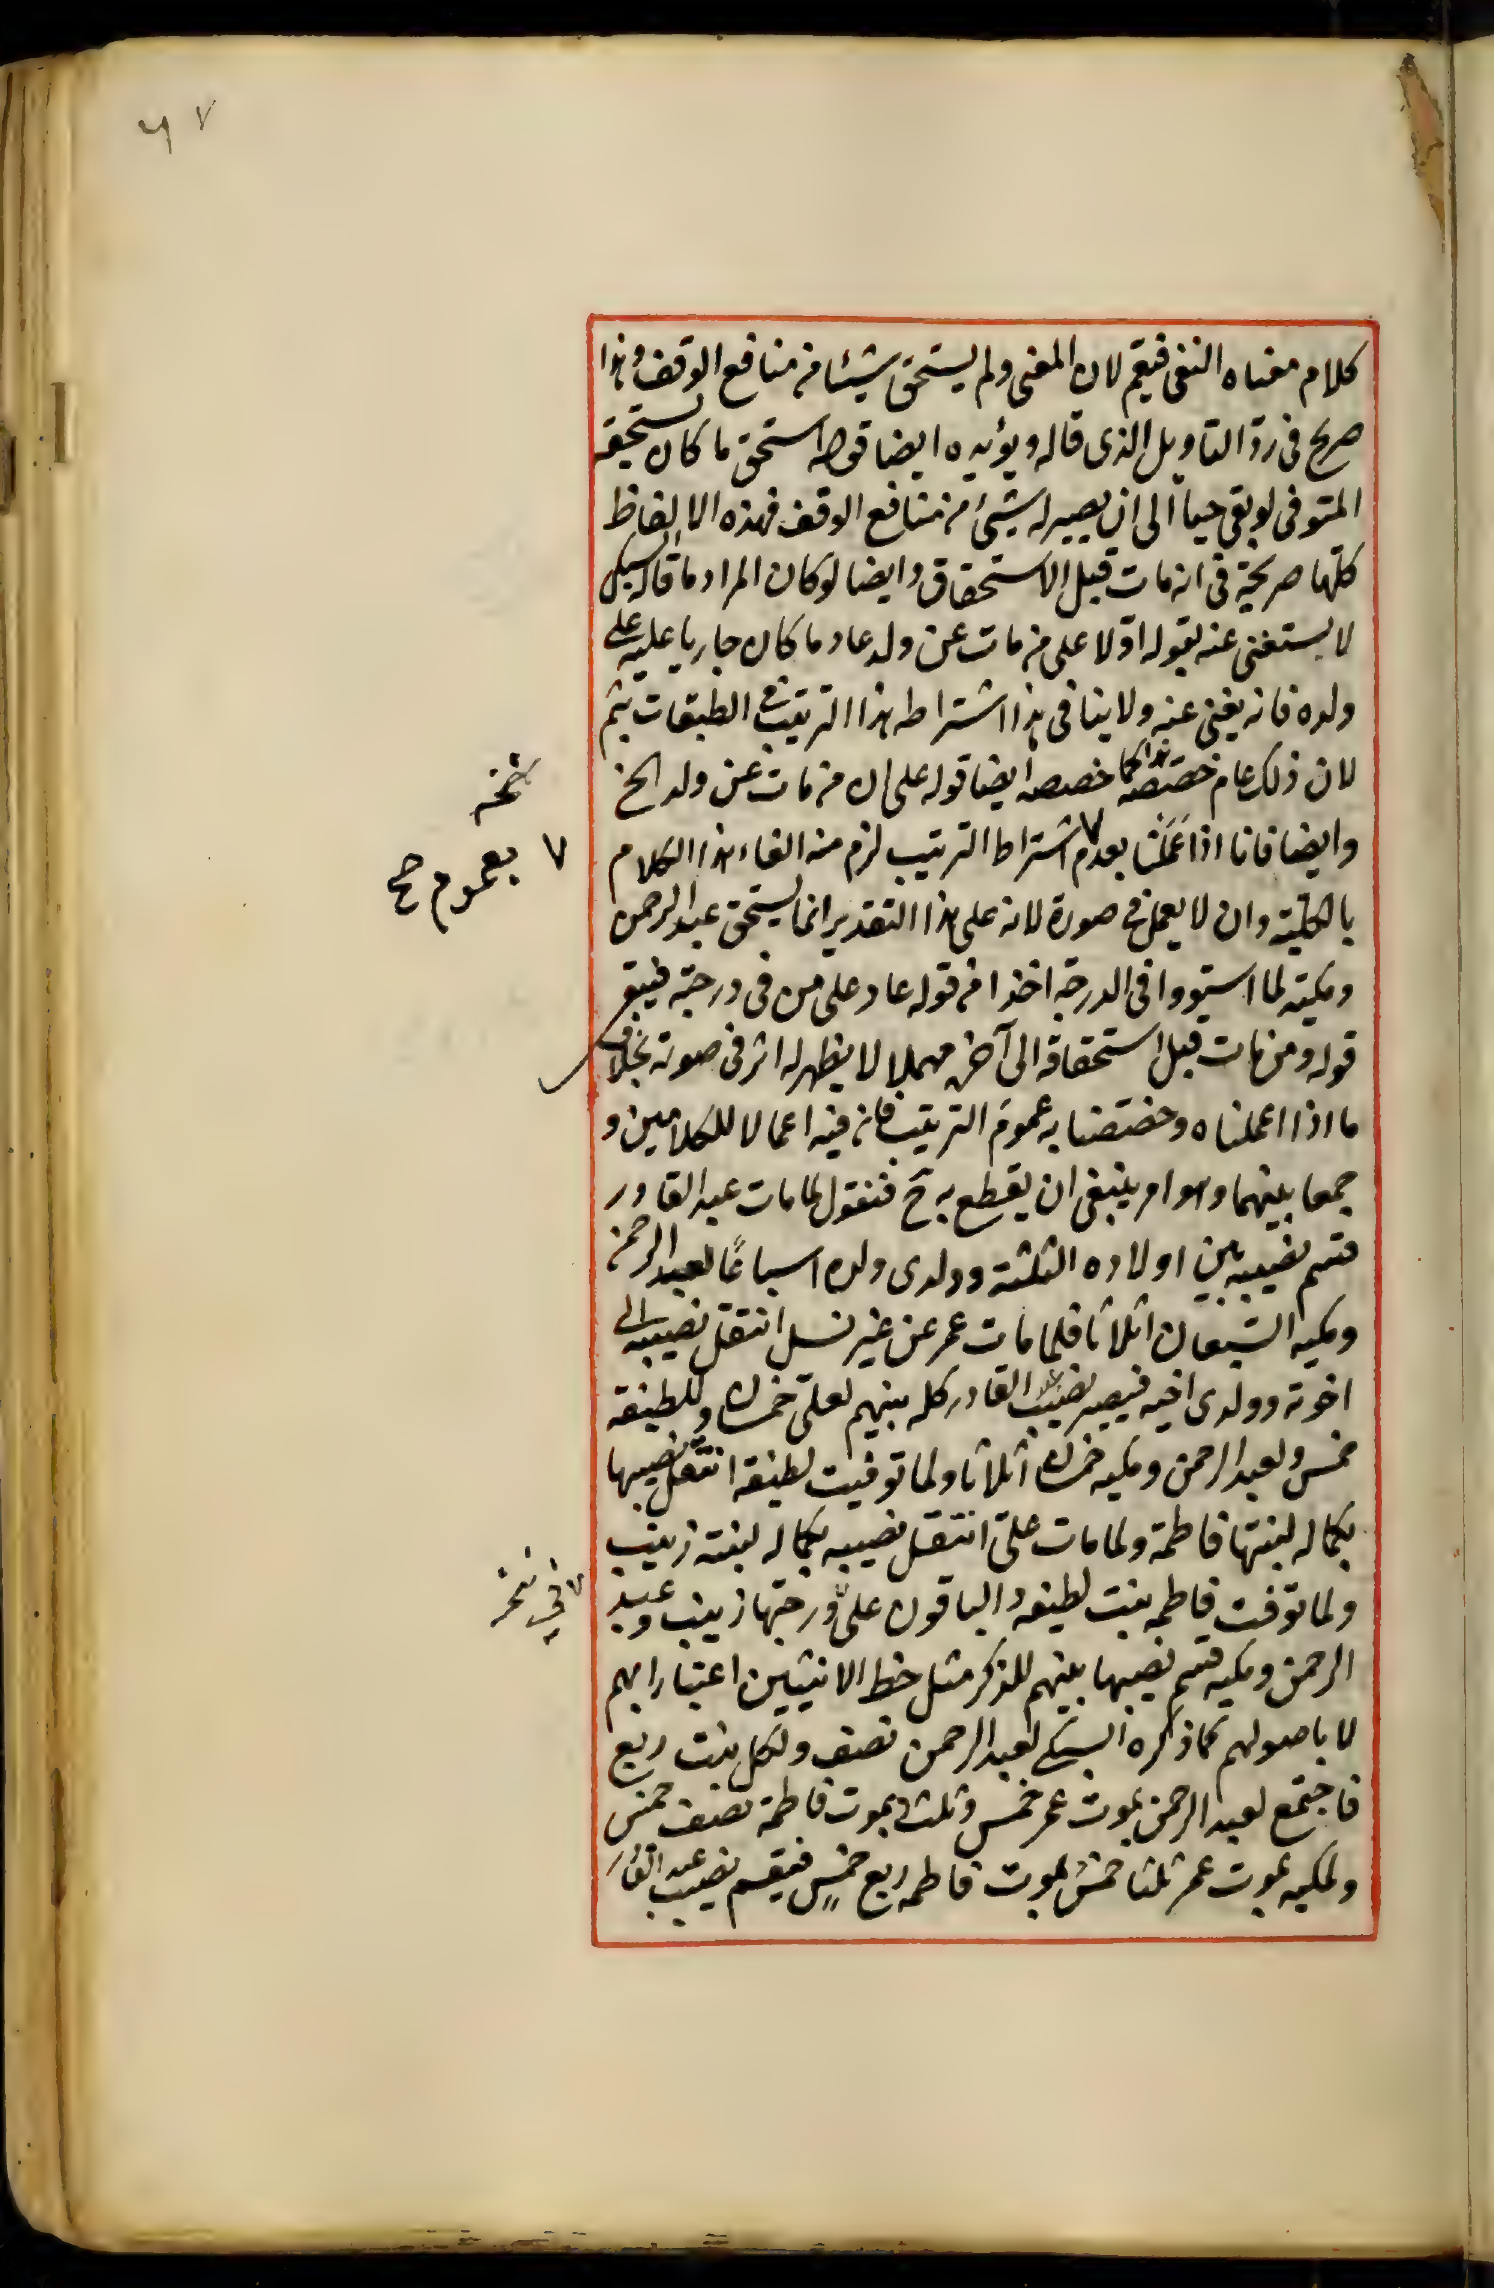 ٦٧
كلام معناه النفى فيعم لان المعنى ولم يستحق شيئا من منافع الوقف وهذا
صريح فى ردّ التاويل الذى قاله ويؤيده ايضا قوله استحق ما كان يستحقه
المتوفى لو بقى حياً الى ان يصير له شيئ من منافع الوقف فهذه الالفاظ
كلّها صريحة فى انه مات قبل الاستحقاق وايضا لو كان المراد ما قاله السبكى
لا يستغنى عنه بقوله اوّلا على من مات عن ولد عاد ما كان جاريا عليه على
ولده فانه يغنى عنه ولا ينافى هذا اشتراطه هذا الترتيب فى الطبقات بثم
لان ذلك عام خصّصه هذا كما خصصه ايضا قوله على ان من مات عن ولد الخ
وايضا فانا اذا عملنا بعدم اشتراط الترتيب لزم منه الغاء هذا الكلام
بالكلّيته وان لا يعمل فى صورة لانه على هذا التقدير انما يستحق عبد الرحمن
ومكيته لما استووا فى الدرجة اخذا من قوله عاد على من فى درجته فيبقى
قوله ومن مات قبل استحقاقه الى آخره مهملا لا يظهر له اثر فى صورة بخلاف
ما اذا اعملناه وخصّصنا به عموم الترتيب فانه فيه اعمالا للكلامين و
جمعا بينهما وهو امر ينبغى ان يقطع به ح فنقول لما مات عبد القادر
قسم نصيبه بين اولاده الثلثة وولدى ولده اسباعًا لعبد الرحمن
ومكيه السّبعان اثلاثا فلما مات عمر عن غير نسل انتقل نصيبه الى
اخوته وولدى اخيه فيصير نصيب عبد القادر كله بينهم لعلىّ خمسان وللطيفه
خمس ولعبد الرحمن ومكيه خمسان اثلاثا ولما توفيت لطيفة انتقل نصيبها
بكماله لبنتها فاطمة ولما مات علىّ انتقل نصيبه بكماله لبنته زينب
ولما توفت فاطمه بنت لطيفه والباقون على درجتها زينب وعبد
الرحمن ومكيه قسم نصيبها بينهم للذكر مثل حظ الانثيين اعتبارا بهم
لا باصولهم كما ذكره السبكى لعبد الرحمن نصف ولكل بنت ربع
فاجتمع لعبد الرحمن بموت عمر خمس وثلث وبموت فاطمة نصف خمس
ولمكيه بموت عمر ثلثا خمس وبموت فاطمه ربع خمس فيقسم نصيب عبد القادر
نسخه
٧ بعموم صح
٧ فى نسخه